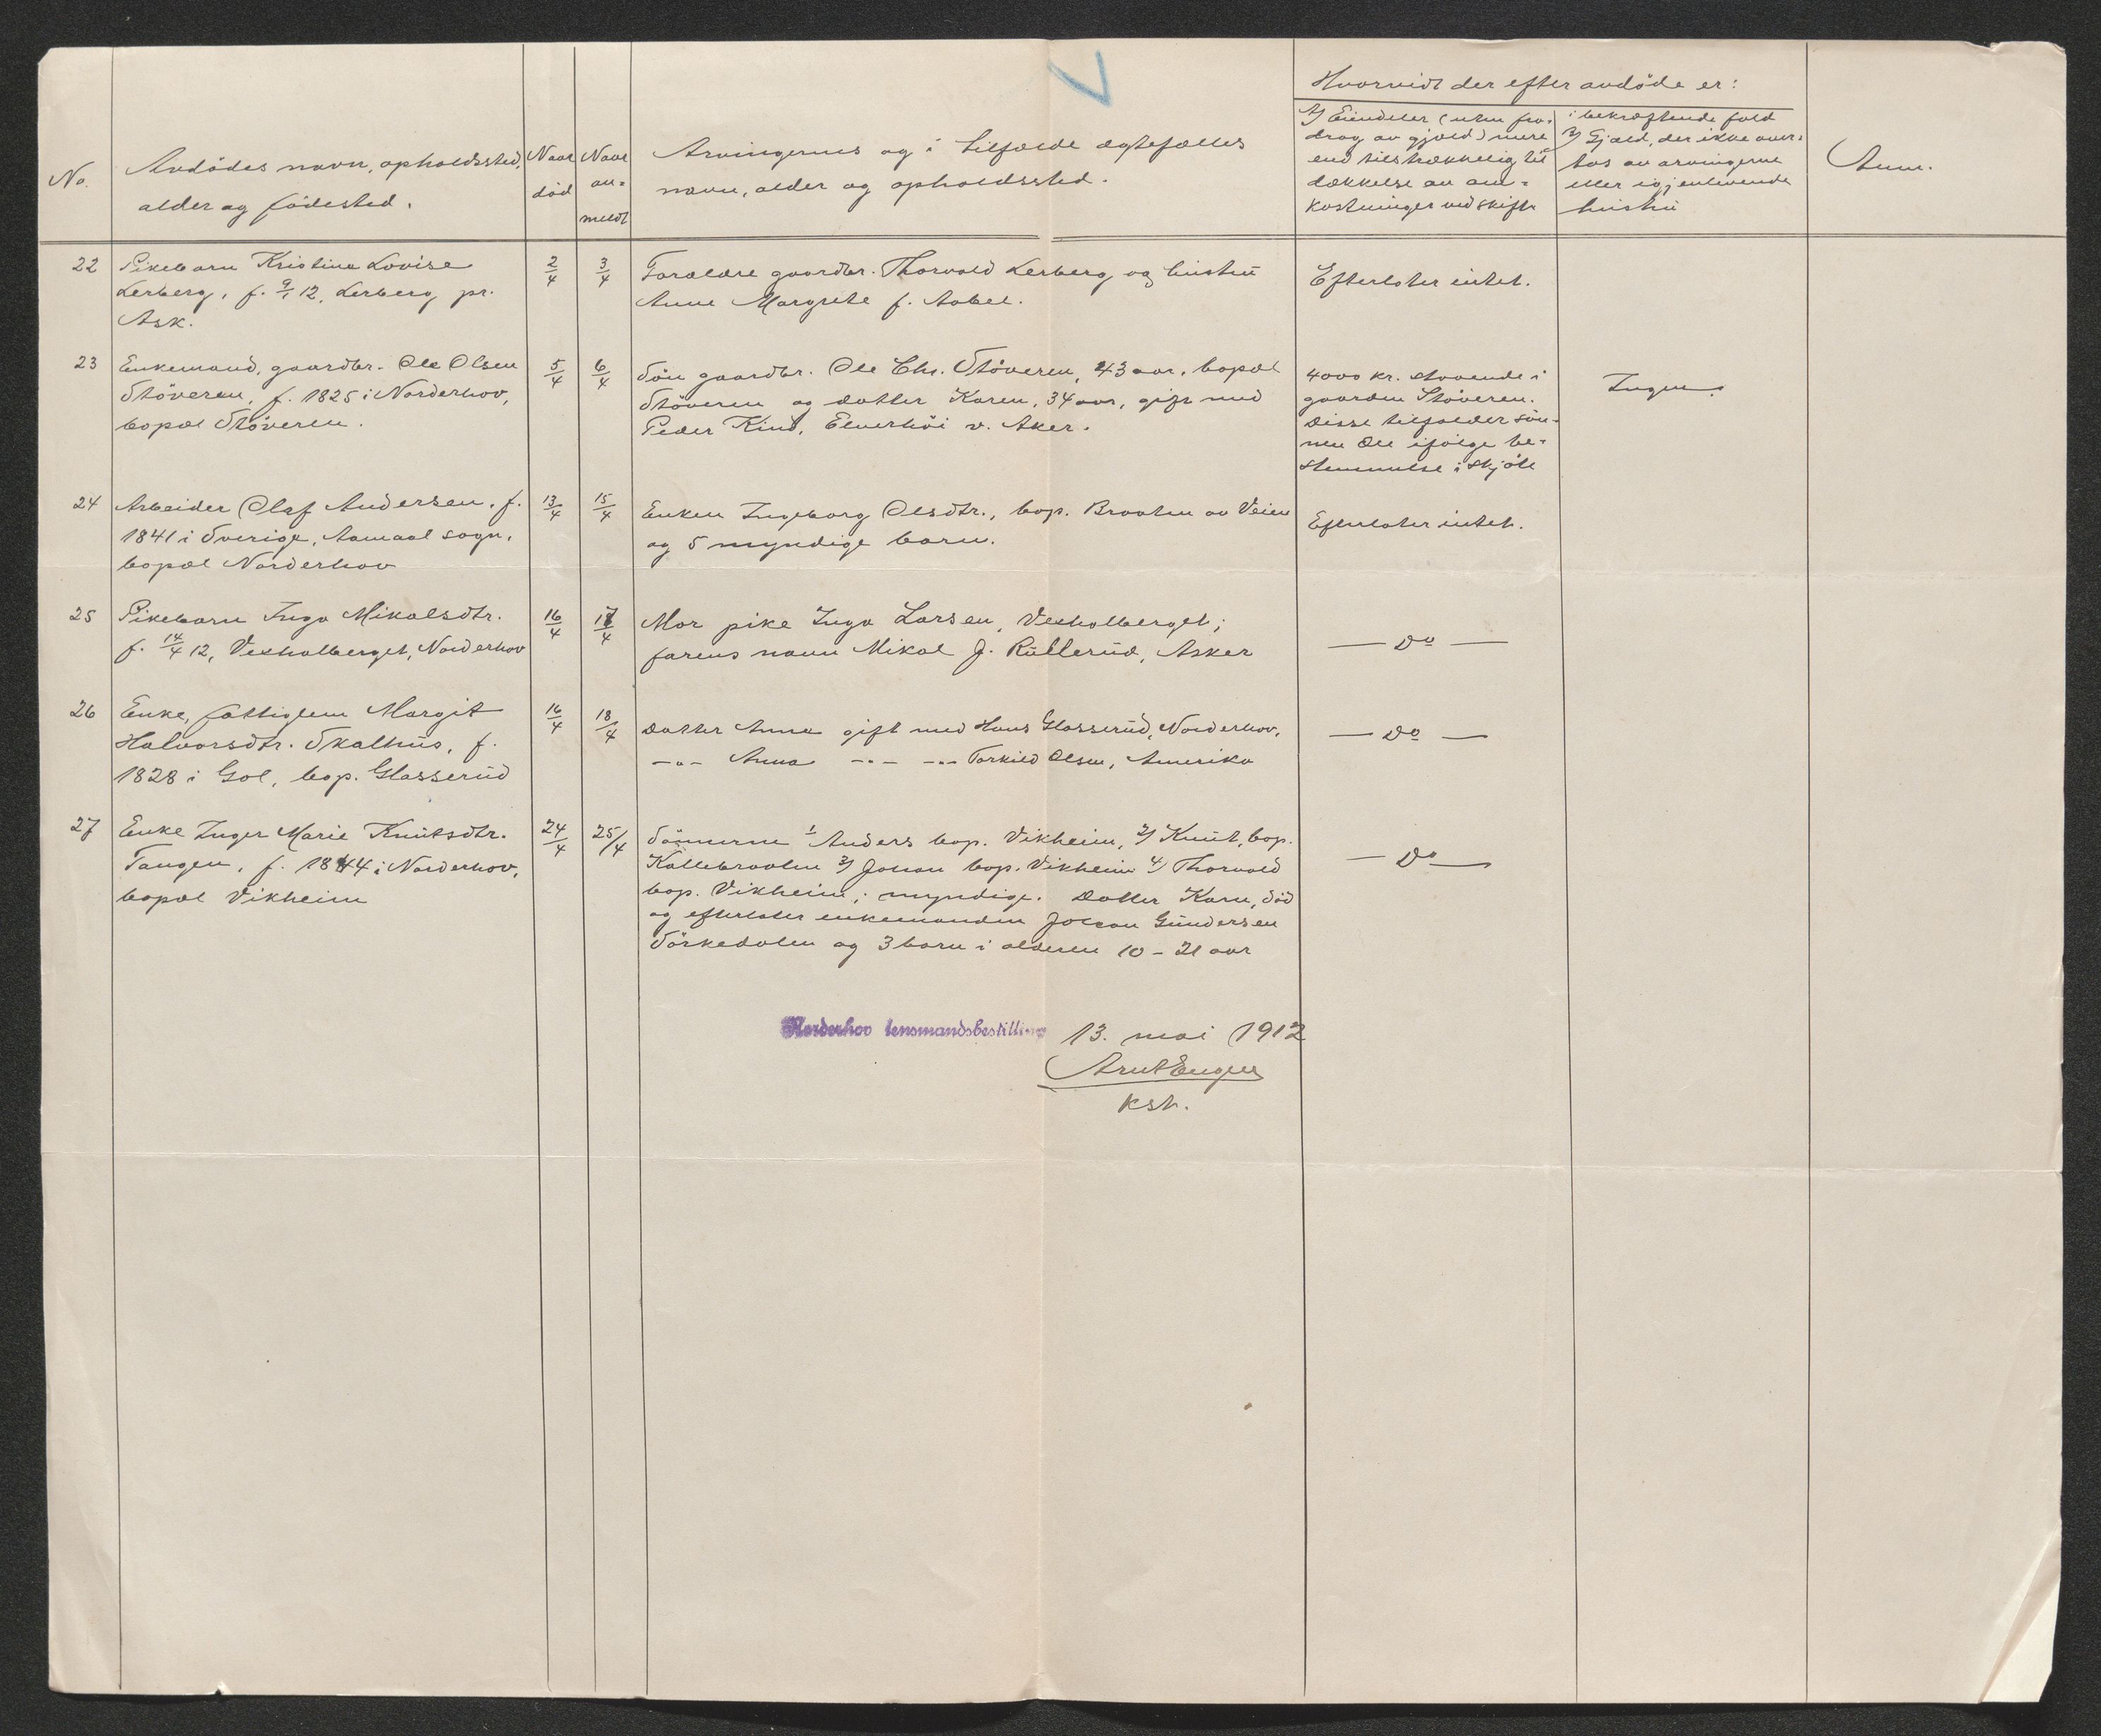 Hvorvidt der efter avdöde er:
No.
Avdödes navn, opholdssted,
alder og födested.
Naar
död
Naar
an-
meldt
Arvingernes og i tilfælde ægtefælles
navn, alder og opholdssted.
1) Eiendeler (uten fra-
drag av gjæld) mere
end tilstrækkelig til
dækkelse av om-
kostninger ved skifte
i bekræftende fald
2) Gjæld, der ikke over-
tas av arvingerne
eller igjenlevende
hustru
Anm.
22
Pikebarn Kristine Lovise
Lerberg, f. 9/1 12, Lerberg pr.
Ask.
2/4
3/4
Forældre gaardbr. Thorvald Lerberg og hustru
Anne Margrete f. Aabel.
Efterlater intet.
23
Enkemand, gaardbr. Ole Olsen
Stöveren, f. 1825 i Norderhov,
bopæl Stöveren.
5/4
6/4
Sön gaardbr. Ole Chr. Stöveren, 43 aar, bopæl
Stöveren og datter Karen, 34 aar, gift med
Peder Kind, Elverhöi v. Aker.
4000 kr. staaende i
gaarden Stöveren.
Disse tilfalder sön-
nen Ole ifölge be-
stemmelse i skjöte
Ingen.
24
Arbeider Olaf Andersen, f.
1841 i Sverige, Aamaal sogn,
bopæl Norderhov
13/4
15/4
Enken Ingeborg Olsdtr., bop. Braaten av Veien
og 5 myndige barn.
Efterlater intet.
25
Pikebarn Inga Mikalsdtr.
f. 14/4 12, Veshalberget, Norderhov
16/4
17/4
Mor pike Inga Larsen, Veshalberget;
farens navn Mikal J. Rullerud, Asker
— Do —
26
Enke, fattiglem Margit
Halvorsdtr. Skalhus, f.
1828 i Gol, bop. Glasserud
16/4
18/4
Datter Anne gift med Hans Glasserud, Norderhov,
-"- Anna -"- -"- Torkild Olsen, Amerika
— Do —
27
Enke Inger Marie Knutsdtr.
Tangen, f. 1844 i Norderhov,
bopæl Vikheim
24/4
25/4
Sönnerne 1) Anders bop. Vikheim, 2) Knut, bop.
Kallebraaten 3) Johan bop. Vikheim 4) Thorvald
bop. Vikheim; myndige. Datter Karn, död
og efterlater enkemanden Johan Gundersen
Sörkedalen og 3 barn i alderen 10 - 21 aar
— Do —
Norderhov lensmandsbestilling 13. mai 1912
Arnt Enger
kst.